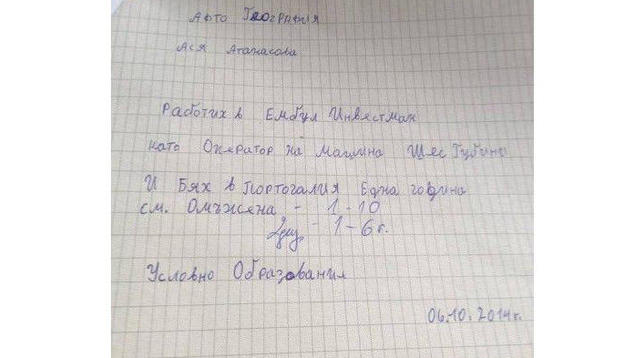 Афто География
Ася Атанасова
Работих в Ембул Инвестман
като Оператор на машина Шес Губино
И Бях в Португалия Една година
см. Омъжена - 1-10
2дец - 1-6 г.
Условно Образования
06.10.2014г.